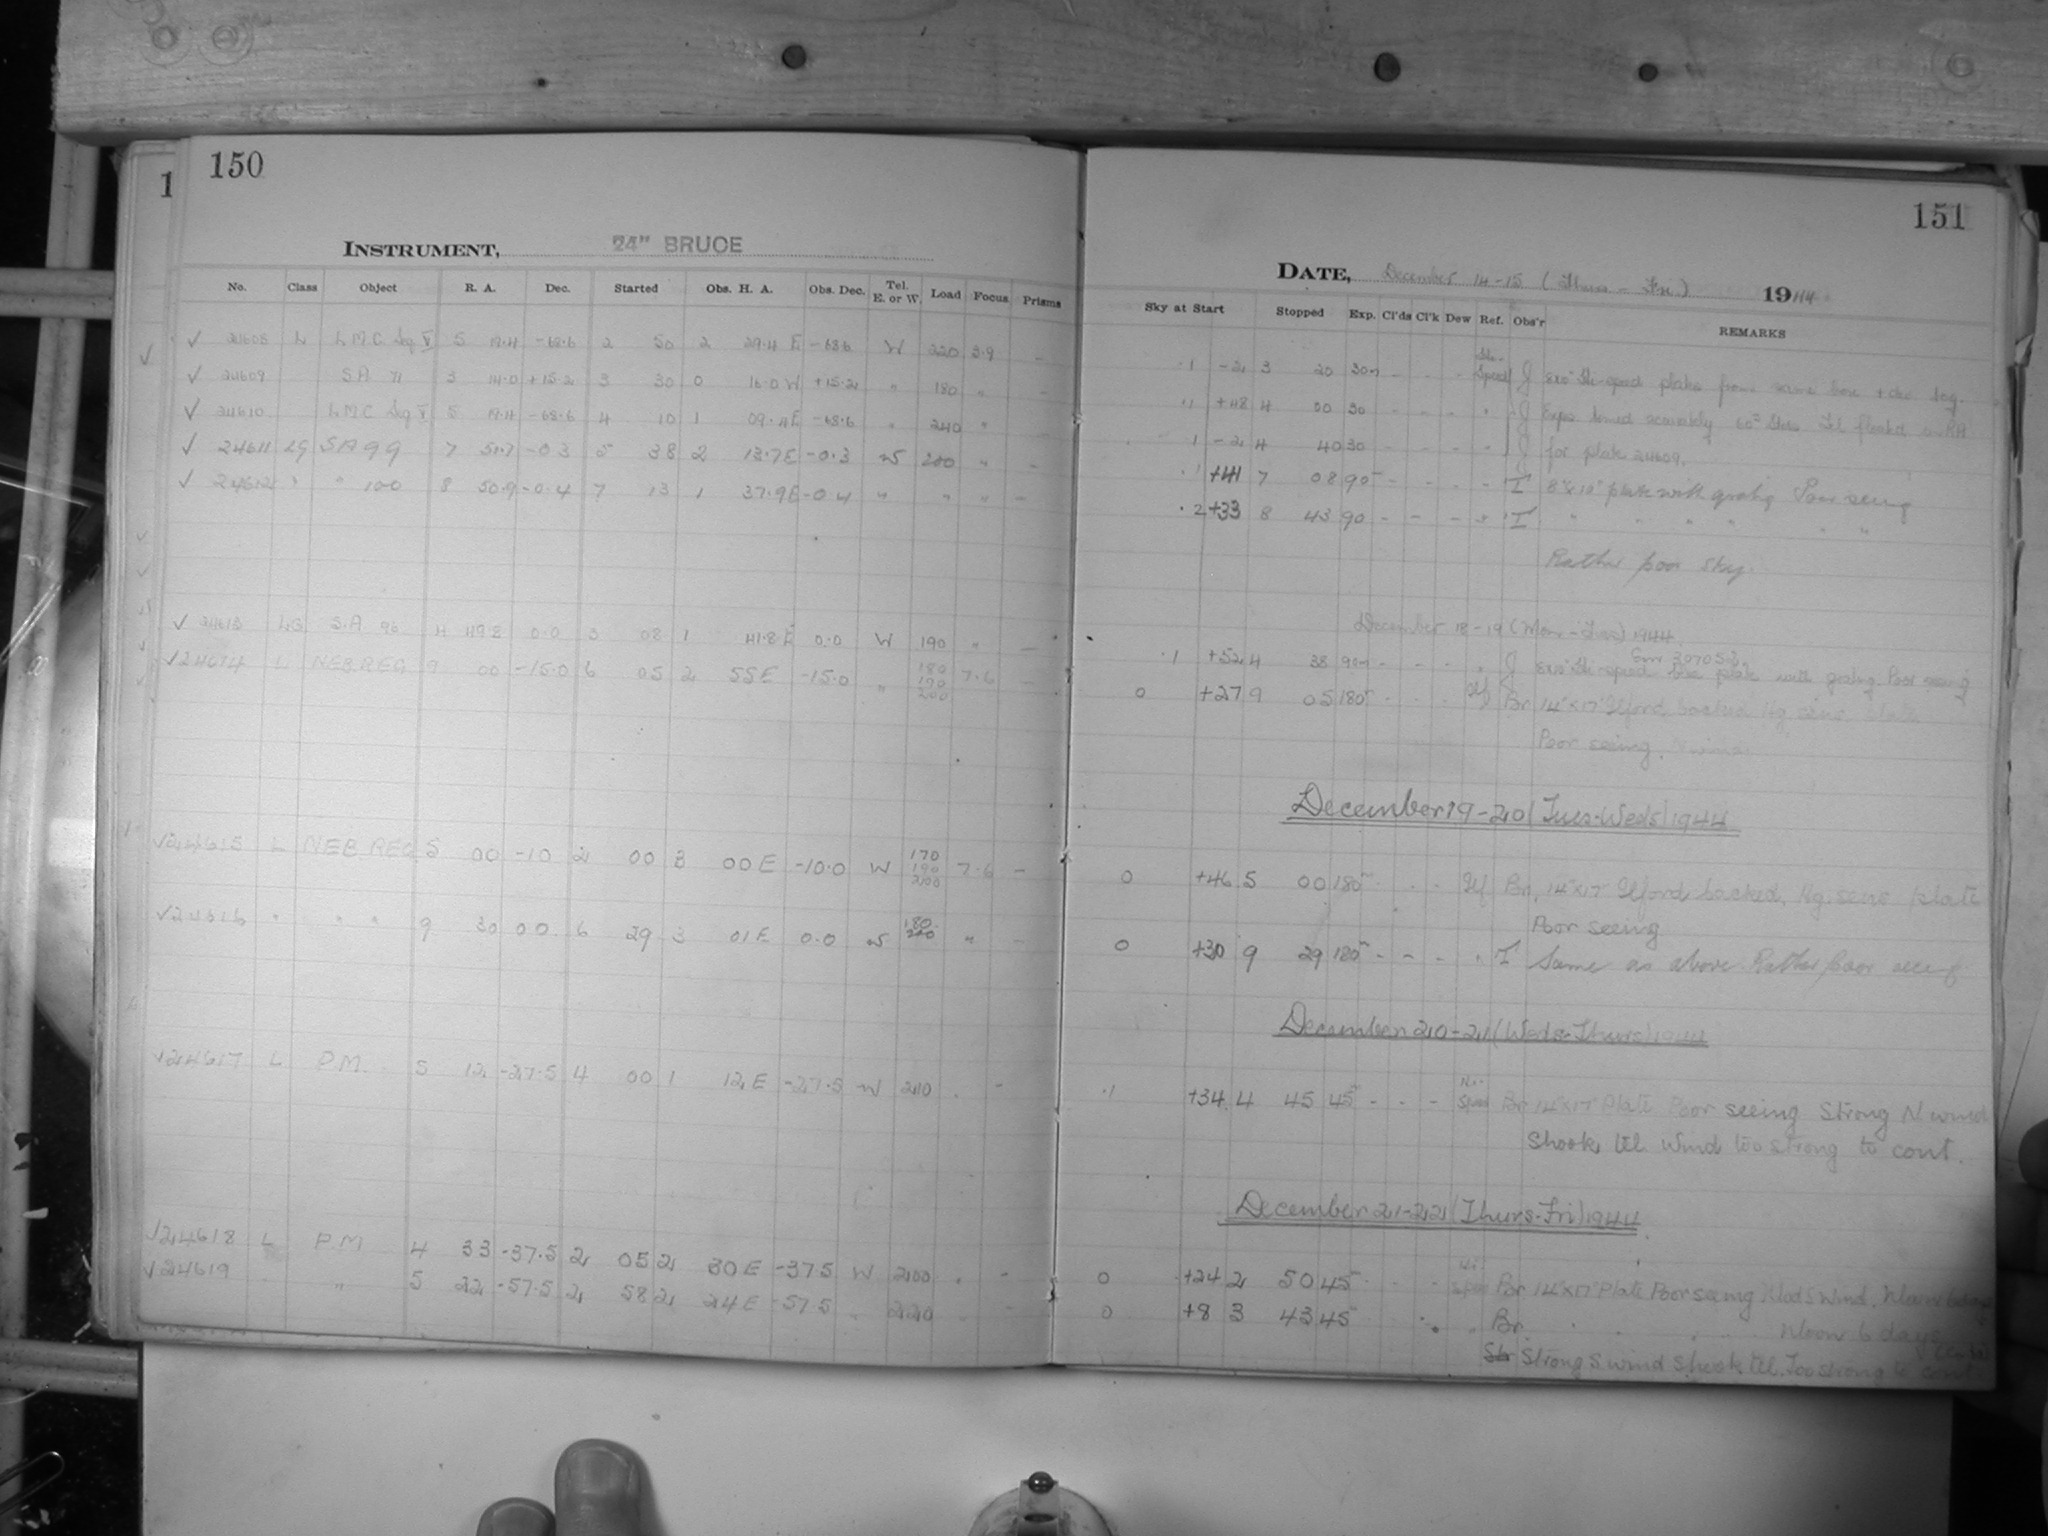 150
1
INSTRUMENT, 24" BRUCE
No. Class Object R. A. Dec. Started Obs. H. A. Obs. Dec. Tel. E. or W. Load Focus Prisms
✓ 24608 L L.M.C Seq V 5 19.4 -68.6 2 50 2 29.4 E -68.6 W 220 3.9 -
✓ 24609 S.A 71 3 14.0 +15.2 3 30 0 16.0 W +15.2 " 180 " -
✓ 24610 L.M.C Seq V 5 19.4 -68.6 4 10 1 09.4 E -68.6 " 240 " -
✓ 24611 LG SA 99 7 51.7 -0.3 5 38 2 13.7 E -0.3 W 200 " -
✓ 24612 " " 100 8 50.9 -0.4 7 13 1 37.9 E -0.4 " " " -
✓ 24613 LG S.A 96 4 49.8 0.0 3 08 1 41.8 E 0.0 W 190 " -
✓ 24614 L NEB REG 9 00 -15.0 6 05 2 55 E -15.0 " 180 190 200 7.6 -
✓ 24615 L NEB REG 5 00 -10 2 00 3 00 E -10.0 W 170 190 200 7.6 -
✓ 24616 " " " 9 30 00 6 29 3 01 E 0.0 W 180 220 " -
✓ 24617 L P.M. 5 12 -27.5 4 00 1 12 E -27.5 W 210 . -
✓ 24618 L P.M 4 33 -37.5 2 05 2 30 E -37.5 W 200 . -
✓ 24619 " 5 22 -57.5 2 58 2 24 E -57.5 . 220
151
DATE, December 14-15 (Thurs - Fri) 1944
Sky at Start Stopped Exp. Cl'ds Cl'k Dew Ref. Obs'r REMARKS
.1 -2 3 20 30m - - - Speed J 8x10 plates from same box + dev tog.
.1 +48 4 00 30 - - - " J Expos timed accurately
.1 -2 4 40 30 - - - " J for plate 24609.
.1 +41 7 08 90 - - - - " I 8"x10" plate with grating Poor seeing
.2 +33 8 43 90 - - - " I " " " " " "
Rather poor sky.
December 18-19 (Mon - Tues) 1944
.1 +52 4 38 90m - - - " J 8x10 plate with grating. Poor seeing
0 +27 9 05 180 - - - Ilf Br 14"x17" Ilford backed Hg sens plate
Poor seeing.
December 19-20 (Tues-Weds) 1944
0 +46 5 00 180 - - - Ilf Br. 14"x17" Ilford backed, Hg. sens plate
Poor seeing
0 +30 9 29 180 - - - " I Same as above Rather poor seeing
December 20-21 (Weds-Thurs) 1944
.1 +34 4 45 45 - - - Speed Br 14"x17" Plate Poor seeing Strong N wind
Shook tel. Wind too strong to cont.
December 21-22 (Thurs-Fri) 1944
0 +24 2 50 45 - - - Speed Br 14"x17" Plate Poor seeing Mod S wind, Moon 6 days
0 +8 3 43 45 " Br Moon 6 days
Strong S wind Shook tel. Too strong to cont.